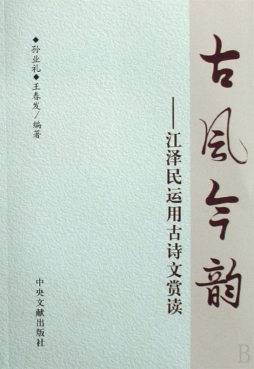 古风今韵
——江泽民运用古诗文赏读
◆孙业礼◆王春发/编著
中央文献出版社